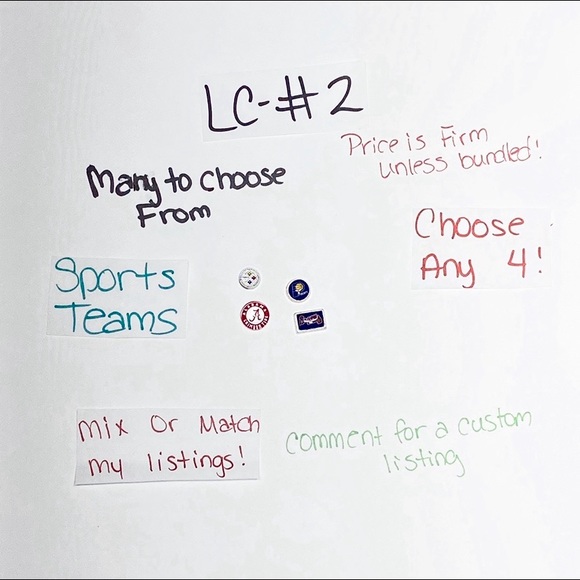 LC-#2
Price is Firm
unless bundled!
Many to choose
From
Choose
Any 4!
Sports
Teams
A
mix Or Match
my listings!
comment for a custom
listing